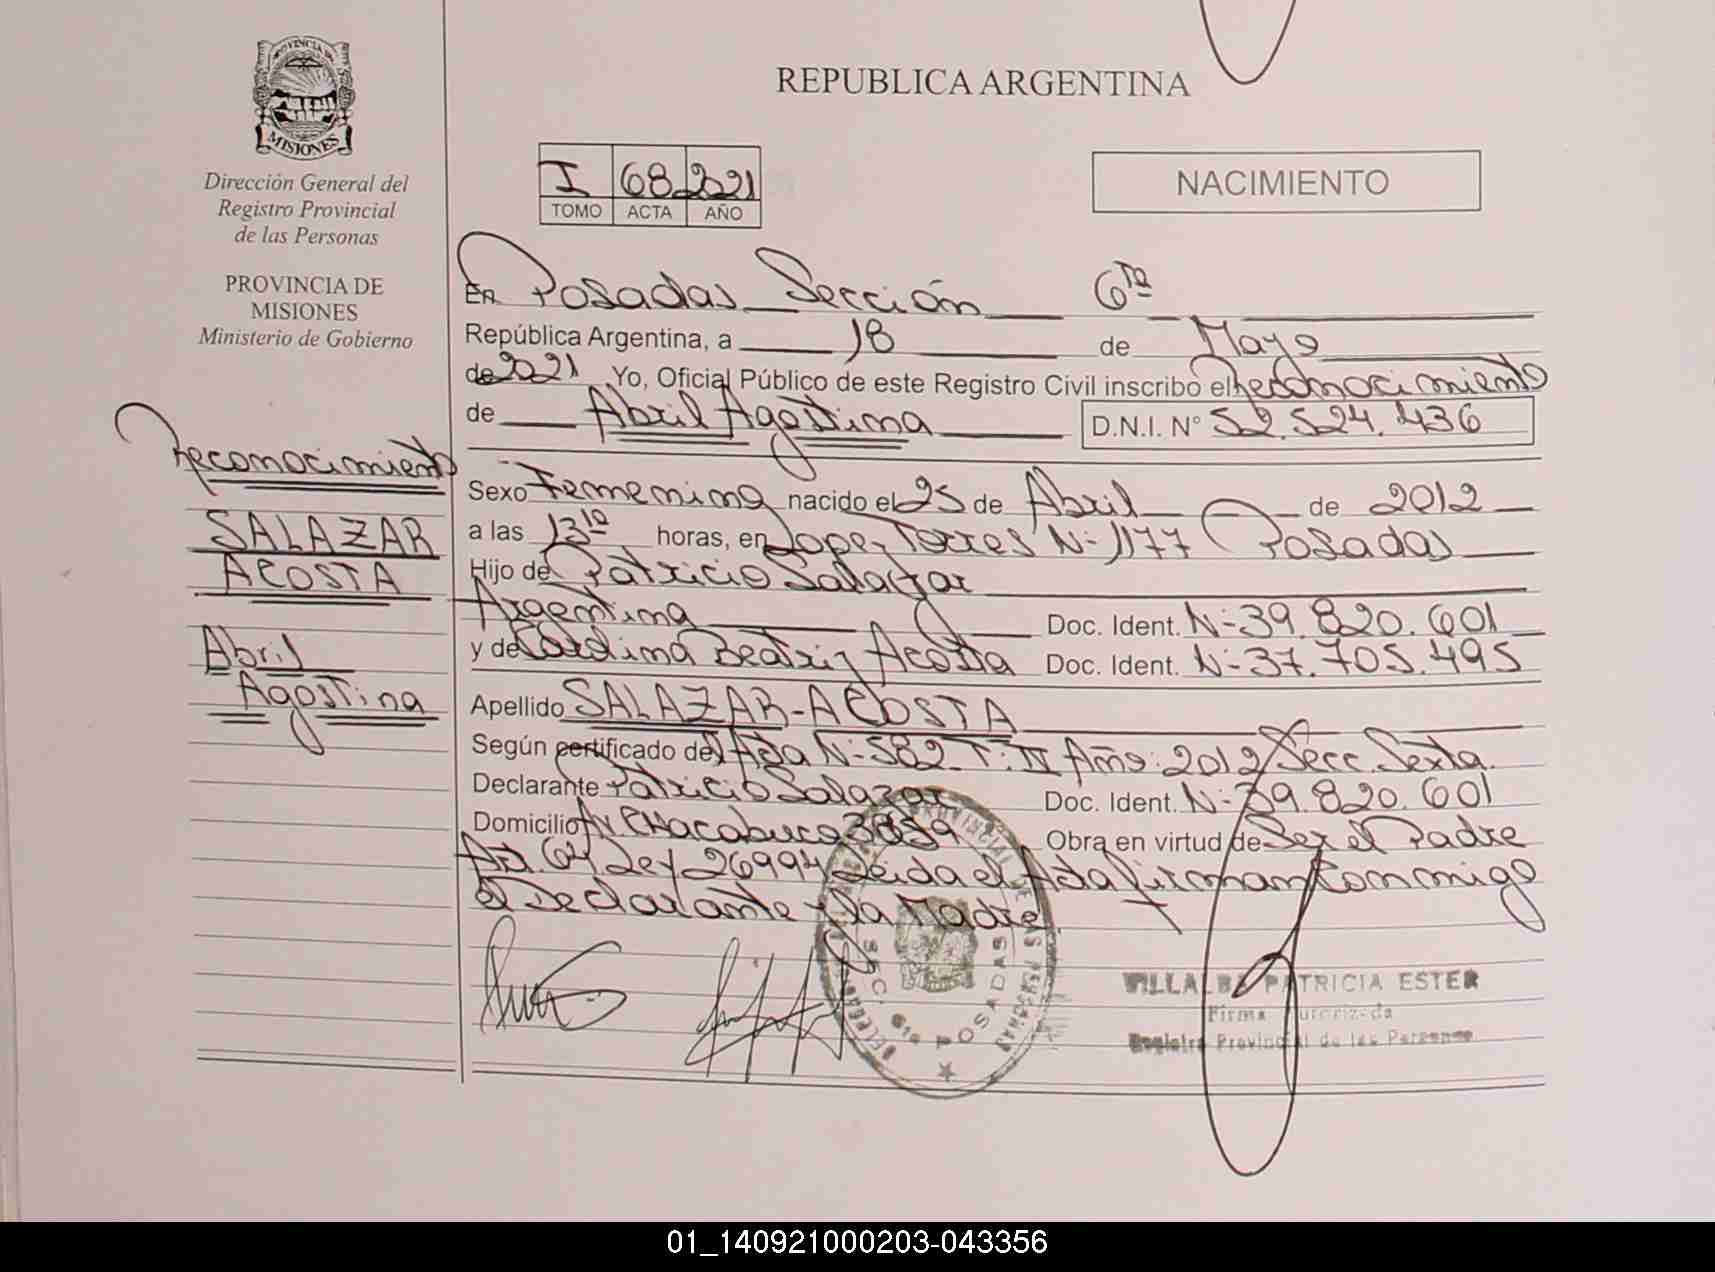 REPUBLICA ARGENTINA
PROVINCIA DE
MISIONES
Dirección General del
Registro Provincial
de las Personas
PROVINCIA DE
MISIONES
Ministerio de Gobierno
I 68 2021
TOMO ACTA AÑO
NACIMIENTO
En Posadas Sección 6ta
República Argentina, a 18 de Mayo
de 2021 Yo, Oficial Público de este Registro Civil inscribo el Reconocimiento
de Abril Agostina D.N.I. N° 52.524.436
Reconocimiento
SALAZAR
ACOSTA
Abril
Agostina
Sexo Femenino nacido el 25 de Abril de 2012
a las 13 10 horas, en Lopez Torres N° 1177 Posadas
Hijo de Patricio Salazar
Argentina Doc. Ident. N° 39.820.601
y de Carolina Beatriz Acosta Doc. Ident. N° 37.705.495
Apellido SALAZAR-ACOSTA
Según certificado del Acta N° 582 T: IV Año: 2012 Secc. Sexta.
Declarante Patricio Salazar Doc. Ident. N° 39.820.601
Domicilio Av. Chacabuco 3859 Obra en virtud de Ser el Padre
Art. 64 Ley 26994 Leida el Acta firman conmigo
el Declarante y la Madre
SECC. 6ta POSADAS
VILLALBA PATRICIA ESTER
Firma Autorizada
Registro Provincial de las Personas
01_140921000203-043356